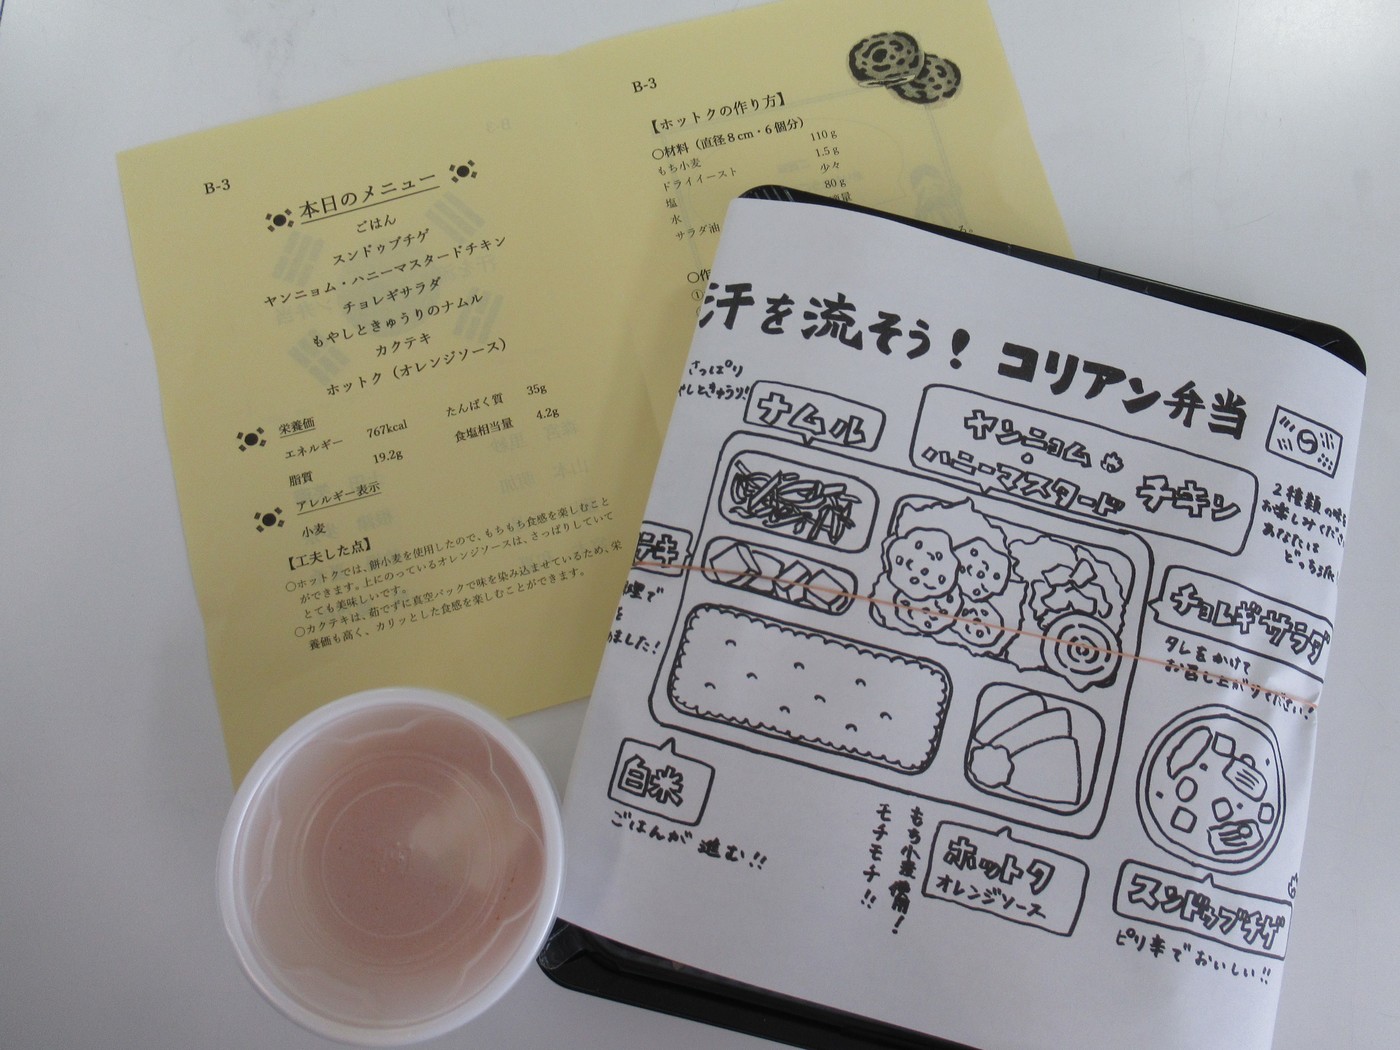 B-3
本日のメニュー
ごはん
スンドゥブチゲ
ヤンニョム・ハニーマスタードチキン
チョレギサラダ
もやしときゅうりのナムル
カクテキ
ホットク（オレンジソース）
栄養価
エネルギー 767kcal たんぱく質 35g
脂質 19.2g 食塩相当量 4.2g
アレルギー表示
小麦
【工夫した点】
○ホットクでは、餅小麦を使用したので、もちもち食感を楽しむこと
ができます。上にのっているオレンジソースは、さっぱりしていて
とても美味しいです。
○カクテキは、茹でずに真空パックで味を染み込ませているため、栄
養価も高く、カリッとした食感を楽しむことができます。
B-3
【ホットクの作り方】
○材料（直径８cm・６個分）
もち小麦 110ｇ
ドライイースト 1.5ｇ
塩 少々
水 80ｇ
サラダ油
○作
①
汗を流そう！ コリアン弁当
さっぱり
やしときゅうり!
ナムル
ヤンニョム
・
ハニーマスタード
チキン
2種類の味を
お楽しみくださ
あなたは
どっち派
テキ
理で
を
ました！
チョレギサラダ
タレをかけて
お召し上がりください！
白米
ごはんが進む!!
もち小麦使用！
モチモチ!!
ホットク
オレンジソース
スンドゥブチゲ
ピリ辛でおいしい!!